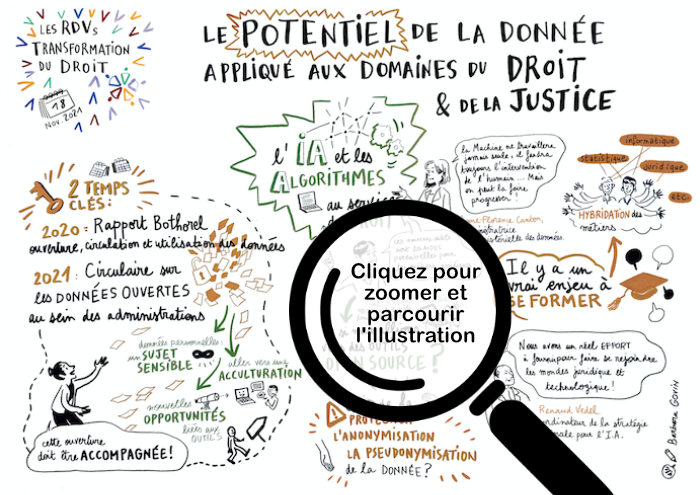 LES RDVs
TRANSFORMATION
DU DROIT
18
NOV. 2021
LE POTENTIEL DE LA DONNÉE
APPLIQUÉ AUX DOMAINES DU DROIT
& DE LA JUSTICE
l'IA et les
ALGORITHMES
au service
la Machine ne travaillera
jamais seule, il faudra
toujours l'intervention
de l'humain... Mais
on peut la faire
progresser !
-Florence Canton,
administratrice
ministérielle des données.
informatique
statistique
juridique
etc.
HYBRIDATION des
métiers
2 TEMPS
CLÉS :
2020 : Rapport Bothorel
ouverture, circulation et utilisation des données
2021 : Circulaire sur
les DONNÉES OUVERTES
au sein des administrations
données personnelles :
un SUJET
SENSIBLE
aller vers une
ACCULTURATION
nouvelles
OPPORTUNITÉS
liées aux
OUTILS
cette ouverture
doit être ACCOMPAGNÉE !
Cliquez pour
zoomer et
parcourir
l'illustration
OPEN SOURCE ?
Il y a un
vrai enjeu à
SE FORMER
Nous avons un réel EFFORT
à fournir pour faire se rejoindre
les mondes juridique et
technologique !
Renaud Vedel
coordinateur de la stratégie
nationale pour l'I.A.
PROTECTION
L'ANONYMISATION
LA PSEUDONYMISATION
de la DONNÉE ?
Barbara Govin